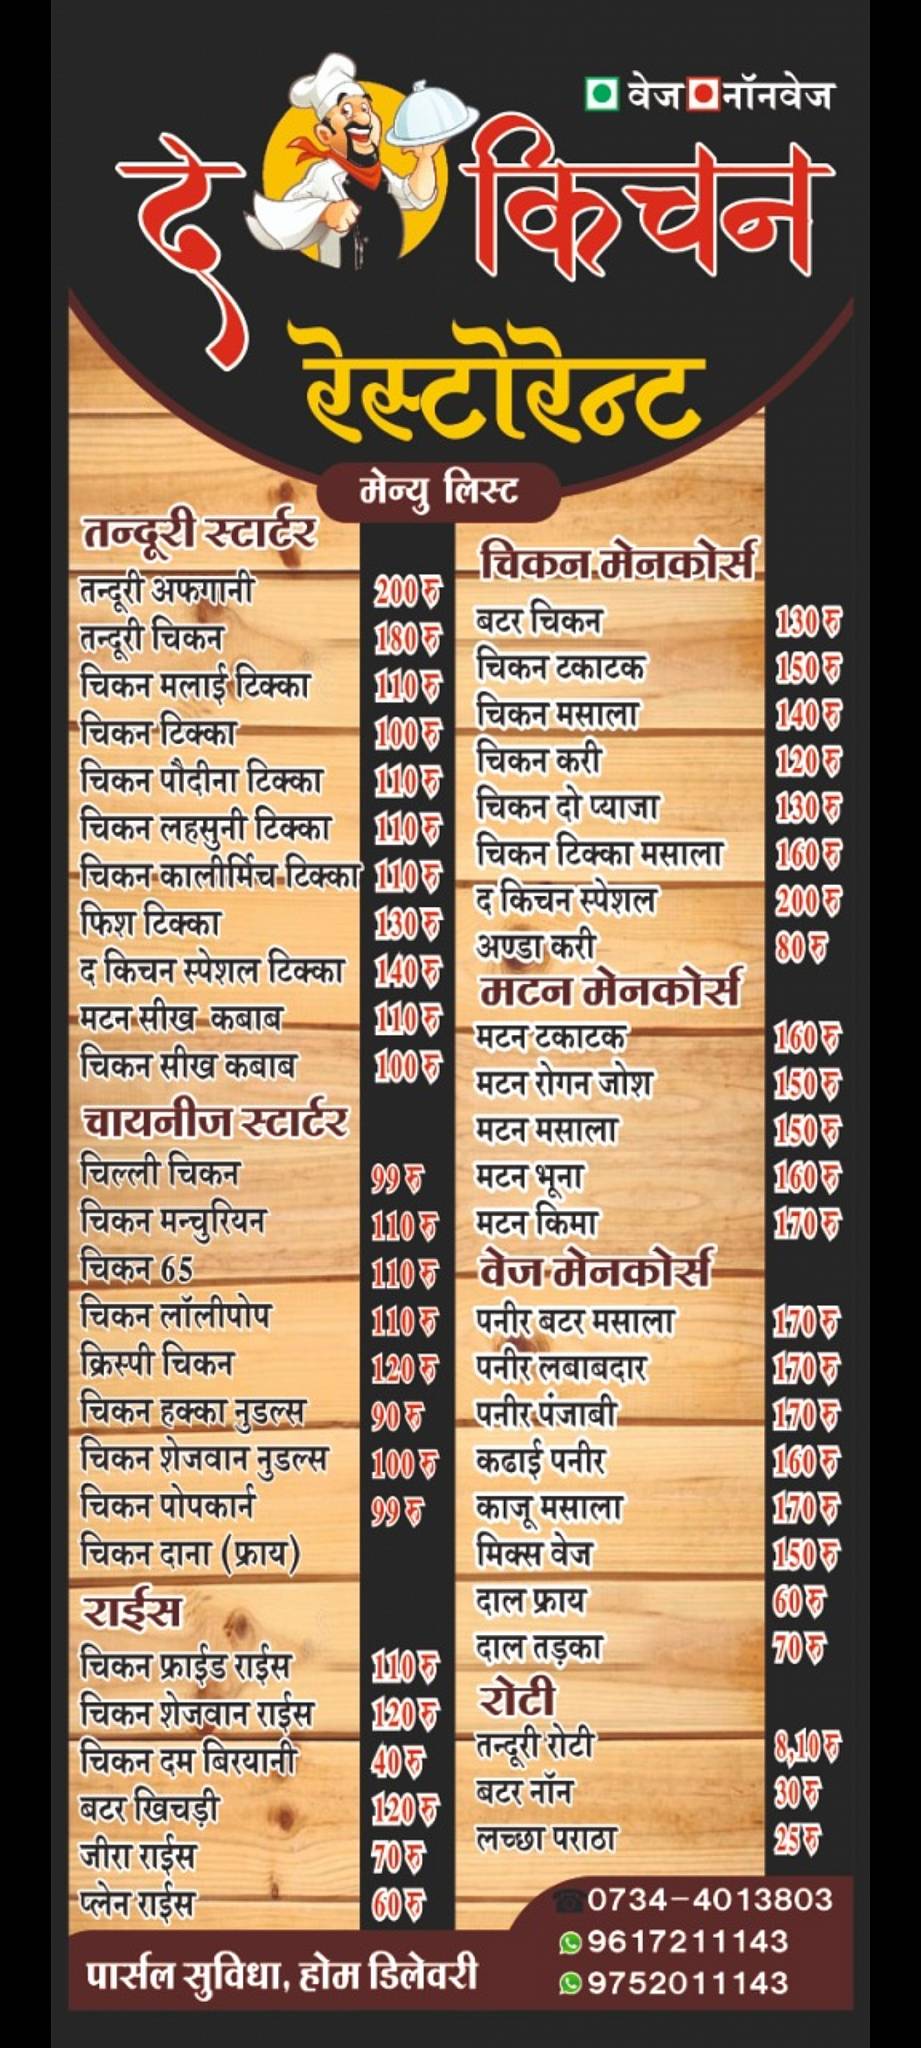 वेज नॉनवेज
द किचन
रेस्टोरेन्ट
मेन्यु लिस्ट
तन्दूरी स्टार्टर
तन्दूरी अफगानी 200रु
तन्दूरी चिकन 180रु
चिकन मलाई टिक्का 110रु
चिकन टिक्का 100रु
चिकन पौदीना टिक्का 110रु
चिकन लहसुनी टिक्का 110रु
चिकन कालीर्मिच टिक्का 110रु
फिश टिक्का 130रु
द किचन स्पेशल टिक्का 140रु
मटन सीख कबाब 110रु
चिकन सीख कबाब 100रु
चायनीज स्टार्टर
चिल्ली चिकन 99रु
चिकन मन्चुरियन 110रु
चिकन 65 110रु
चिकन लॉलीपोप 110रु
क्रिस्पी चिकन 120रु
चिकन हक्का नुडल्स 90रु
चिकन शेजवान नुडल्स 100रु
चिकन पोपकार्न 99रु
चिकन दाना (फ्राय)
राईस
चिकन फ्राईड राईस 110रु
चिकन शेजवान राईस 120रु
चिकन दम बिरयानी 40रु
बटर खिचड़ी 120रु
जीरा राईस 70रु
प्लेन राईस 60रु
चिकन मेनकोर्स
बटर चिकन 130रु
चिकन टकाटक 150रु
चिकन मसाला 140रु
चिकन करी 120रु
चिकन दो प्याजा 130रु
चिकन टिक्का मसाला 160रु
द किचन स्पेशल 200रु
अण्डा करी 80रु
मटन मेनकोर्स
मटन टकाटक 160रु
मटन रोगन जोश 150रु
मटन मसाला 150रु
मटन भूना 160रु
मटन किमा 170रु
वेज मेनकोर्स
पनीर बटर मसाला 170रु
पनीर लबाबदार 170रु
पनीर पंजाबी 170रु
कढाई पनीर 160रु
काजू मसाला 170रु
मिक्स वेज 150रु
दाल फ्राय 60रु
दाल तड़का 70रु
रोटी
तन्दूरी रोटी 8,10रु
बटर नॉन 30रु
लच्छा पराठा 25रु
पार्सल सुविधा, होम डिलेवरी
0734-4013803
9617211143
9752011143